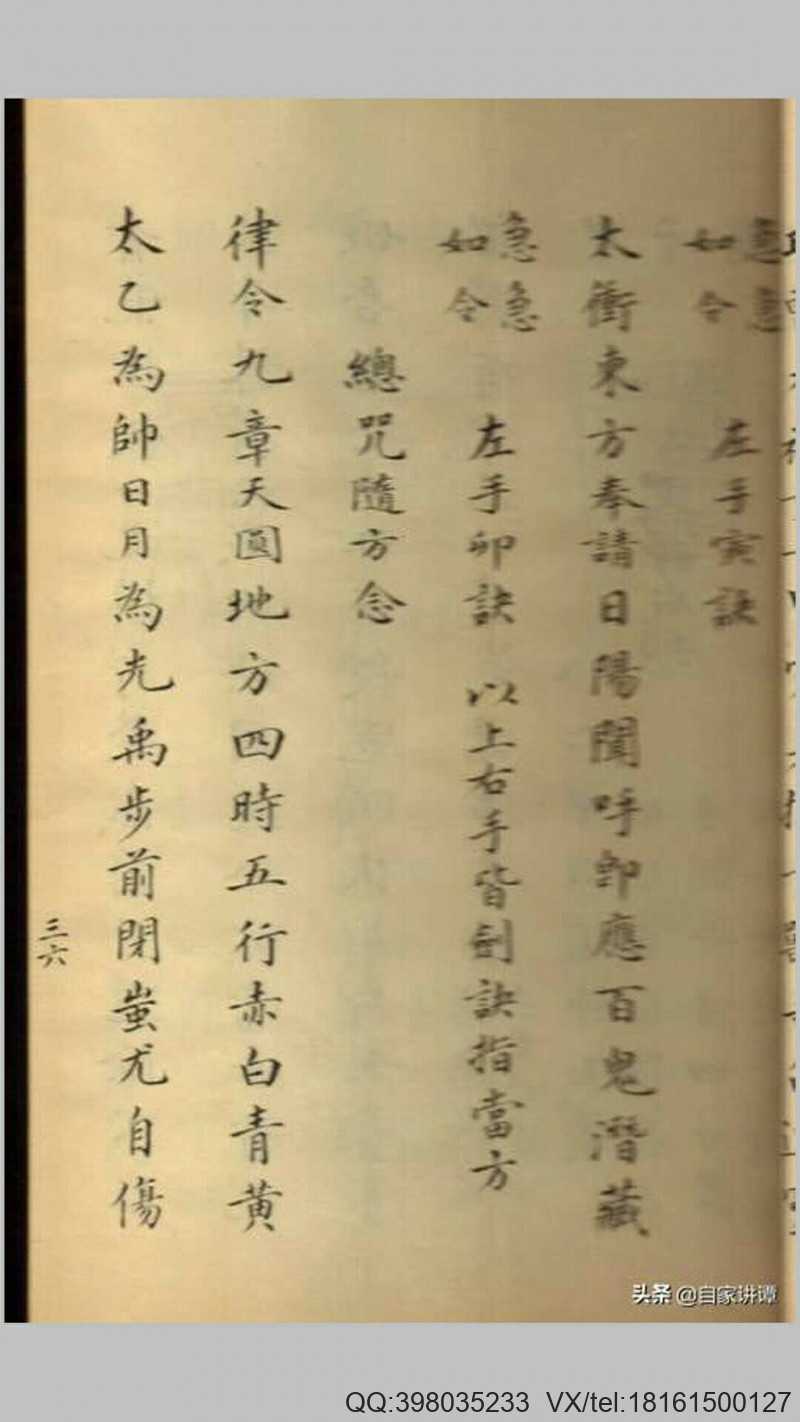 急急如令 左手寅訣
太衝東方奉請日陽聞呼即應百鬼潛藏
急急如令 左手卯訣 以上右手皆劍訣指當方
總咒隨方念
律令九章天圓地方四時五行赤白青黃
太乙為帥日月為光禹步前閉蚩尤自傷
三六
头条 @自家讲谭
QQ:398035233 VX/tel:18161500127